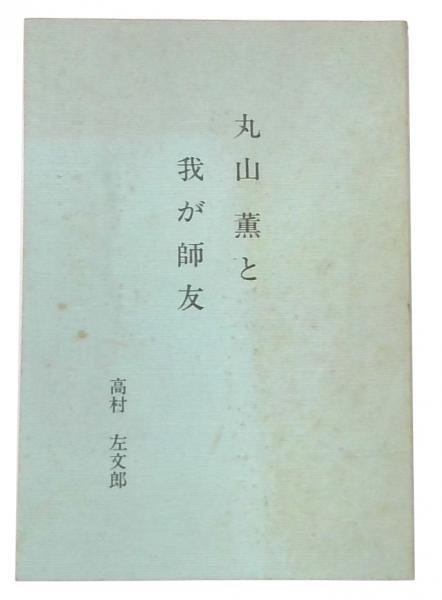 丸山 薫と
我が師友
高村 左文郎